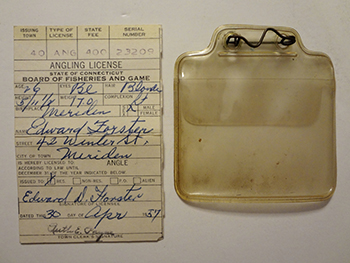 ISSUING TOWN TYPE OF LICENSE STATE FEE SERIAL NUMBER
40 ANG 400 23209
ANGLING LICENSE
STATE OF CONNECTICUT
BOARD OF FISHERIES AND GAME
AGE 26 EYES Bl HAIR Blonde
5/11 1/2 WEIGHT 170 COMPLEXION Lt
Meriden X MALE FEMALE
NAME Edward Forster
STREET 42 Winter St,
CITY OR TOWN Meriden
IS HEREBY LICENSED TO ANGLE
ACCORDING TO LAW UNTIL
DECEMBER 31 OF THE YEAR INDICATED BELOW
ISSUED TO RES. NON-RES. P.O. ALIEN
Edward D. Forster
SIGNATURE OF LICENSEE
DATED THIS 30 DAY OF Apr 1957
Ruth E.
TOWN CLERK'S SIGNATURE